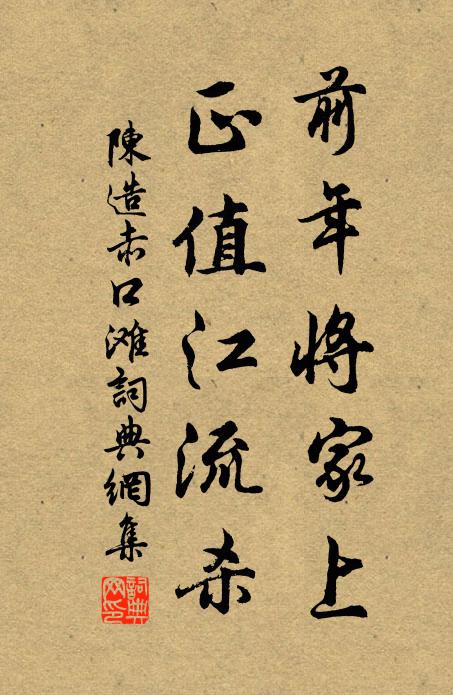 前年將家上
正值江流杀
陳造赤口滩詞典網集
詞典網印